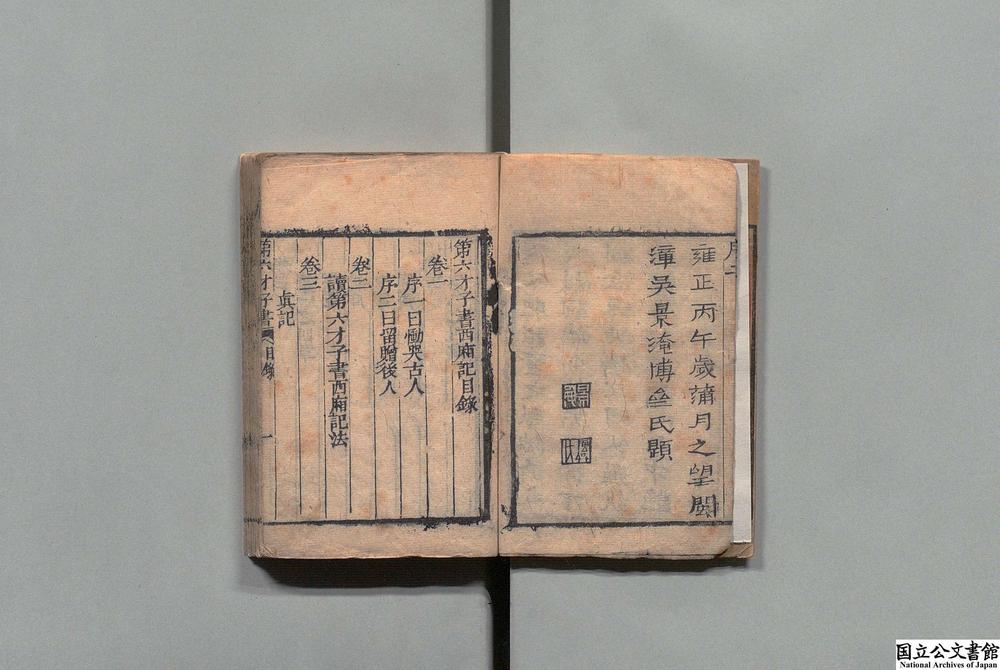 雍正丙午歲蒲月之望閩
漳吳景淹博氏題
第六才子書西廂記目錄
卷一
序一曰慟哭古人
序二曰留贈後人
卷二
讀第六才子書西廂記法
卷三
眞記
第六才子書 目錄 一
国立公文書館
National Archives of Japan